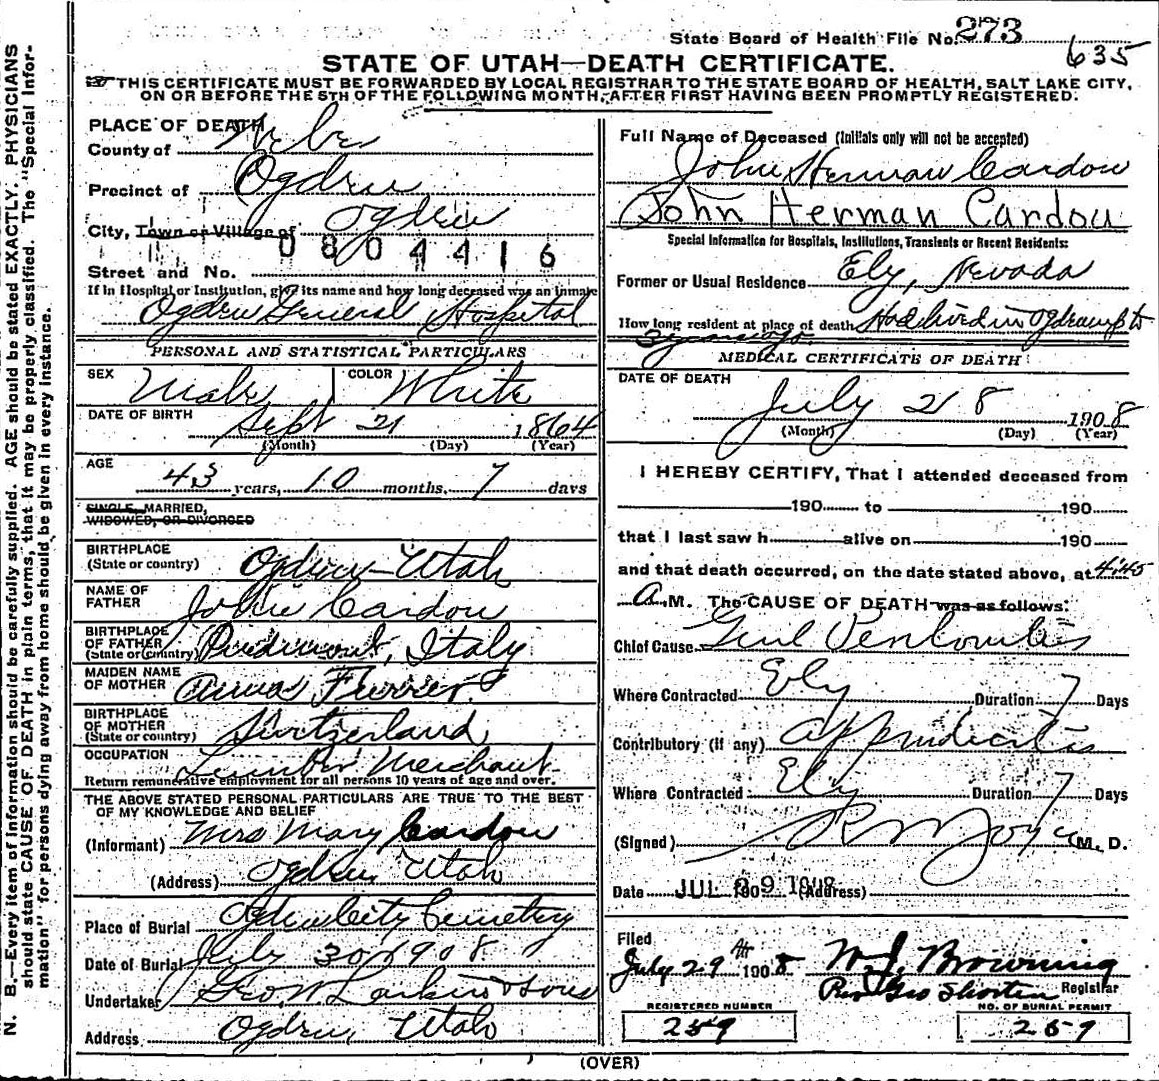 State Board of Health File No. 273
635
STATE OF UTAH—DEATH CERTIFICATE.
THIS CERTIFICATE MUST BE FORWARDED BY LOCAL REGISTRAR TO THE STATE BOARD OF HEALTH, SALT LAKE CITY,
ON OR BEFORE THE 5TH OF THE FOLLOWING MONTH, AFTER FIRST HAVING BEEN PROMPTLY REGISTERED.
N. B.—Every item of information should be carefully supplied. AGE should be stated EXACTLY. PHYSICIANS
should state CAUSE OF DEATH in plain terms, that it may be properly classified. The "Special Infor-
mation" for persons dying away from home should be given in every instance.
PLACE OF DEATH
County of Weber
Precinct of Ogden
City, Town or Village of Ogden
0804416
Street and No.
If in Hospital or Institution, give its name and how long deceased was an inmate
Ogden General Hospital
PERSONAL AND STATISTICAL PARTICULARS
SEX Male COLOR White
DATE OF BIRTH
Sept 21 1864
(Month) (Day) (Year)
AGE
43 years, 10 months, 7 days
SINGLE, MARRIED,
WIDOWED, OR DIVORCED
BIRTHPLACE
(State or country) Ogden Utah
NAME OF
FATHER John Cardou
BIRTHPLACE
OF FATHER
(State or country) Piedmont, Italy
MAIDEN NAME
OF MOTHER Anna Furrer
BIRTHPLACE
OF MOTHER
(State or country) Switzerland
OCCUPATION Lumber Merchant
Return remunerative employment for all persons 10 years of age and over.
THE ABOVE STATED PERSONAL PARTICULARS ARE TRUE TO THE BEST
OF MY KNOWLEDGE AND BELIEF
(Informant) Mrs Mary Cardou
(Address) Ogden Utah
Place of Burial Ogden City Cemetery
Date of Burial July 30 1908
Undertaker Geo. W. Larkin & Sons
Address Ogden, Utah
Full Name of Deceased (Initials only will not be accepted)
John Herman Cardou
John Herman Cardou
Special Information for Hospitals, Institutions, Transients or Recent Residents:
Former or Usual Residence Ely, Nevada
How long resident at place of death Had lived in Ogden up to
3 years ago.
MEDICAL CERTIFICATE OF DEATH
DATE OF DEATH
July 28 1908
(Month) (Day) (Year)
I HEREBY CERTIFY, That I attended deceased from
190 to 190
that I last saw h alive on 190
and that death occurred, on the date stated above, at 4:45
A. M. The CAUSE OF DEATH was as follows:
Chief Cause Genl Peritonitis
Where Contracted Ely Duration 7 Days
Contributory (if any) appendicitis
Where Contracted Ely Duration 7 Days
(Signed) R M Joyce M. D.
Date JUL 29 1908 190 (Address)
Filed
July 29th 1908 W. J. Browning
Registrar
Per Geo Shorten
REGISTERED NUMBER
259
NO. OF BURIAL PERMIT
259
(OVER)